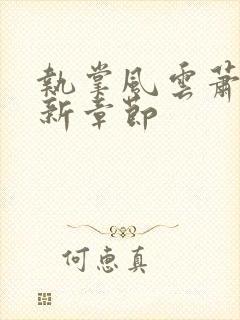 執掌風雲蕭
新章節
何惠真